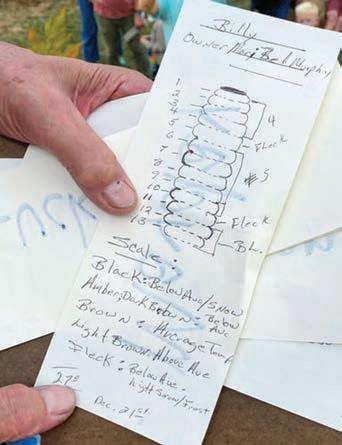 Billy
Owner Maci Bell Murphy
1
2
3
4
5
6
7
8
9
10
11
12
13
4
Fleck
5
Fleck
BL.
Scale:
Black: Below Ave/Snow
Amber, Dark Brown: Below Ave
Brown: Average Temp
Light Brown: Above Ave
Fleck: Below Ave.
light Snow/Frost
Dec. 21st